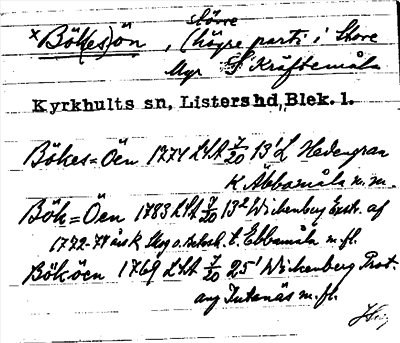 större
× Bök(es)ön , (högre parti i Store
Myr S Kräftemåla
Kyrkhults sn, Listers hd, Blek. l.
Bökes=Öen 1774 LSA 7/20 13¹ L Hedengran
K Äbbamåla m.m.
Bök=Öen 1783 LSA 7/20 13² Wickenberg Extr. af
1772-74 års K Skog o. t. Ebbemåla m.fl.
Bököen 1769 LSA 7/20 25¹ Wickenberg Prot.
ang m.fl.